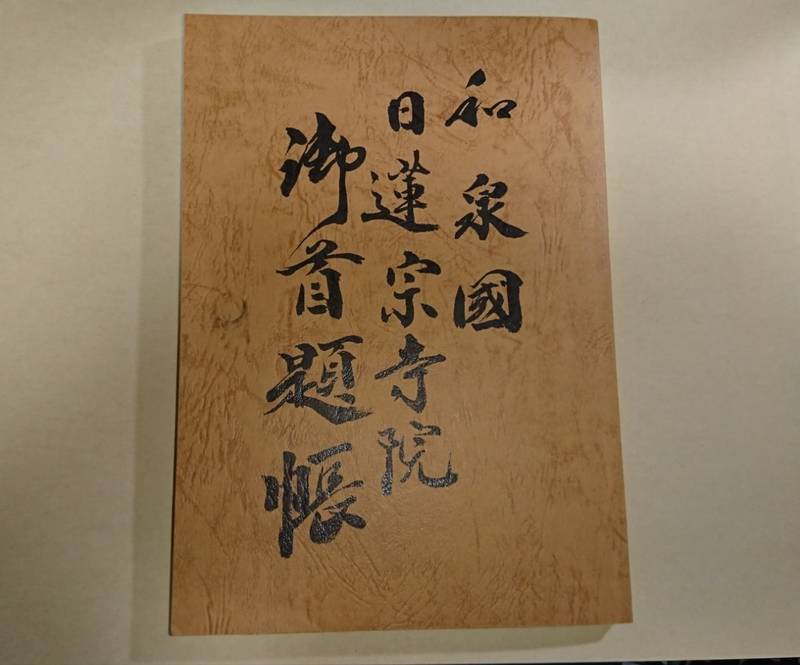 和泉國
日蓮宗寺院
御首題帳